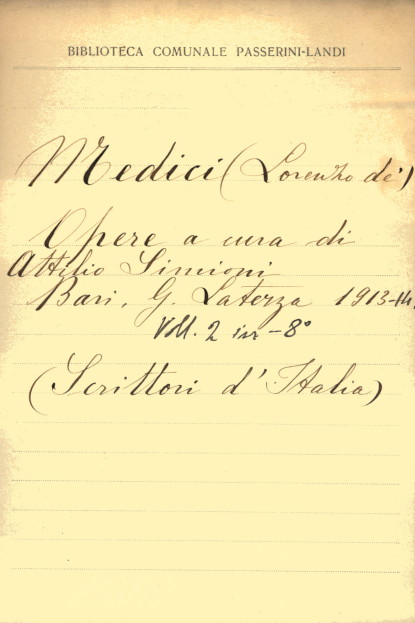 BIBLIOTECA COMUNALE PASSERINI-LANDI
Medici (Lorenzo de')
Opere a cura di
Attilio Simioni
Bari, G. Laterza 1913-14.
Voll. 2 in-8°
(Scrittori d'Italia)